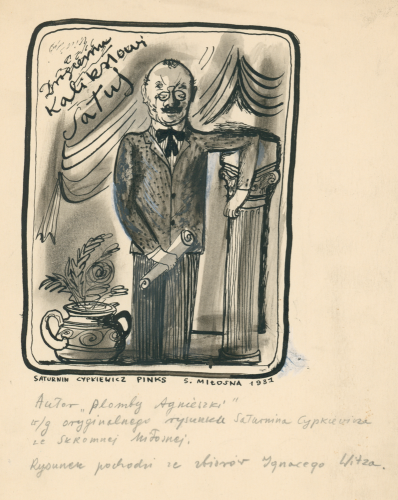 Drogiemu
Kalikstowi
Satuś
SATURNIN CYPKIEWICZ PINKS S. MIŁOSNA 1932
Autor „Plomby Agnieszki"
w/g oryginalnego rysunku Saturnina Cypkiewicza
ze Skromnej Miłosnej.
Rysunek pochodzi ze zbiorów Ignacego